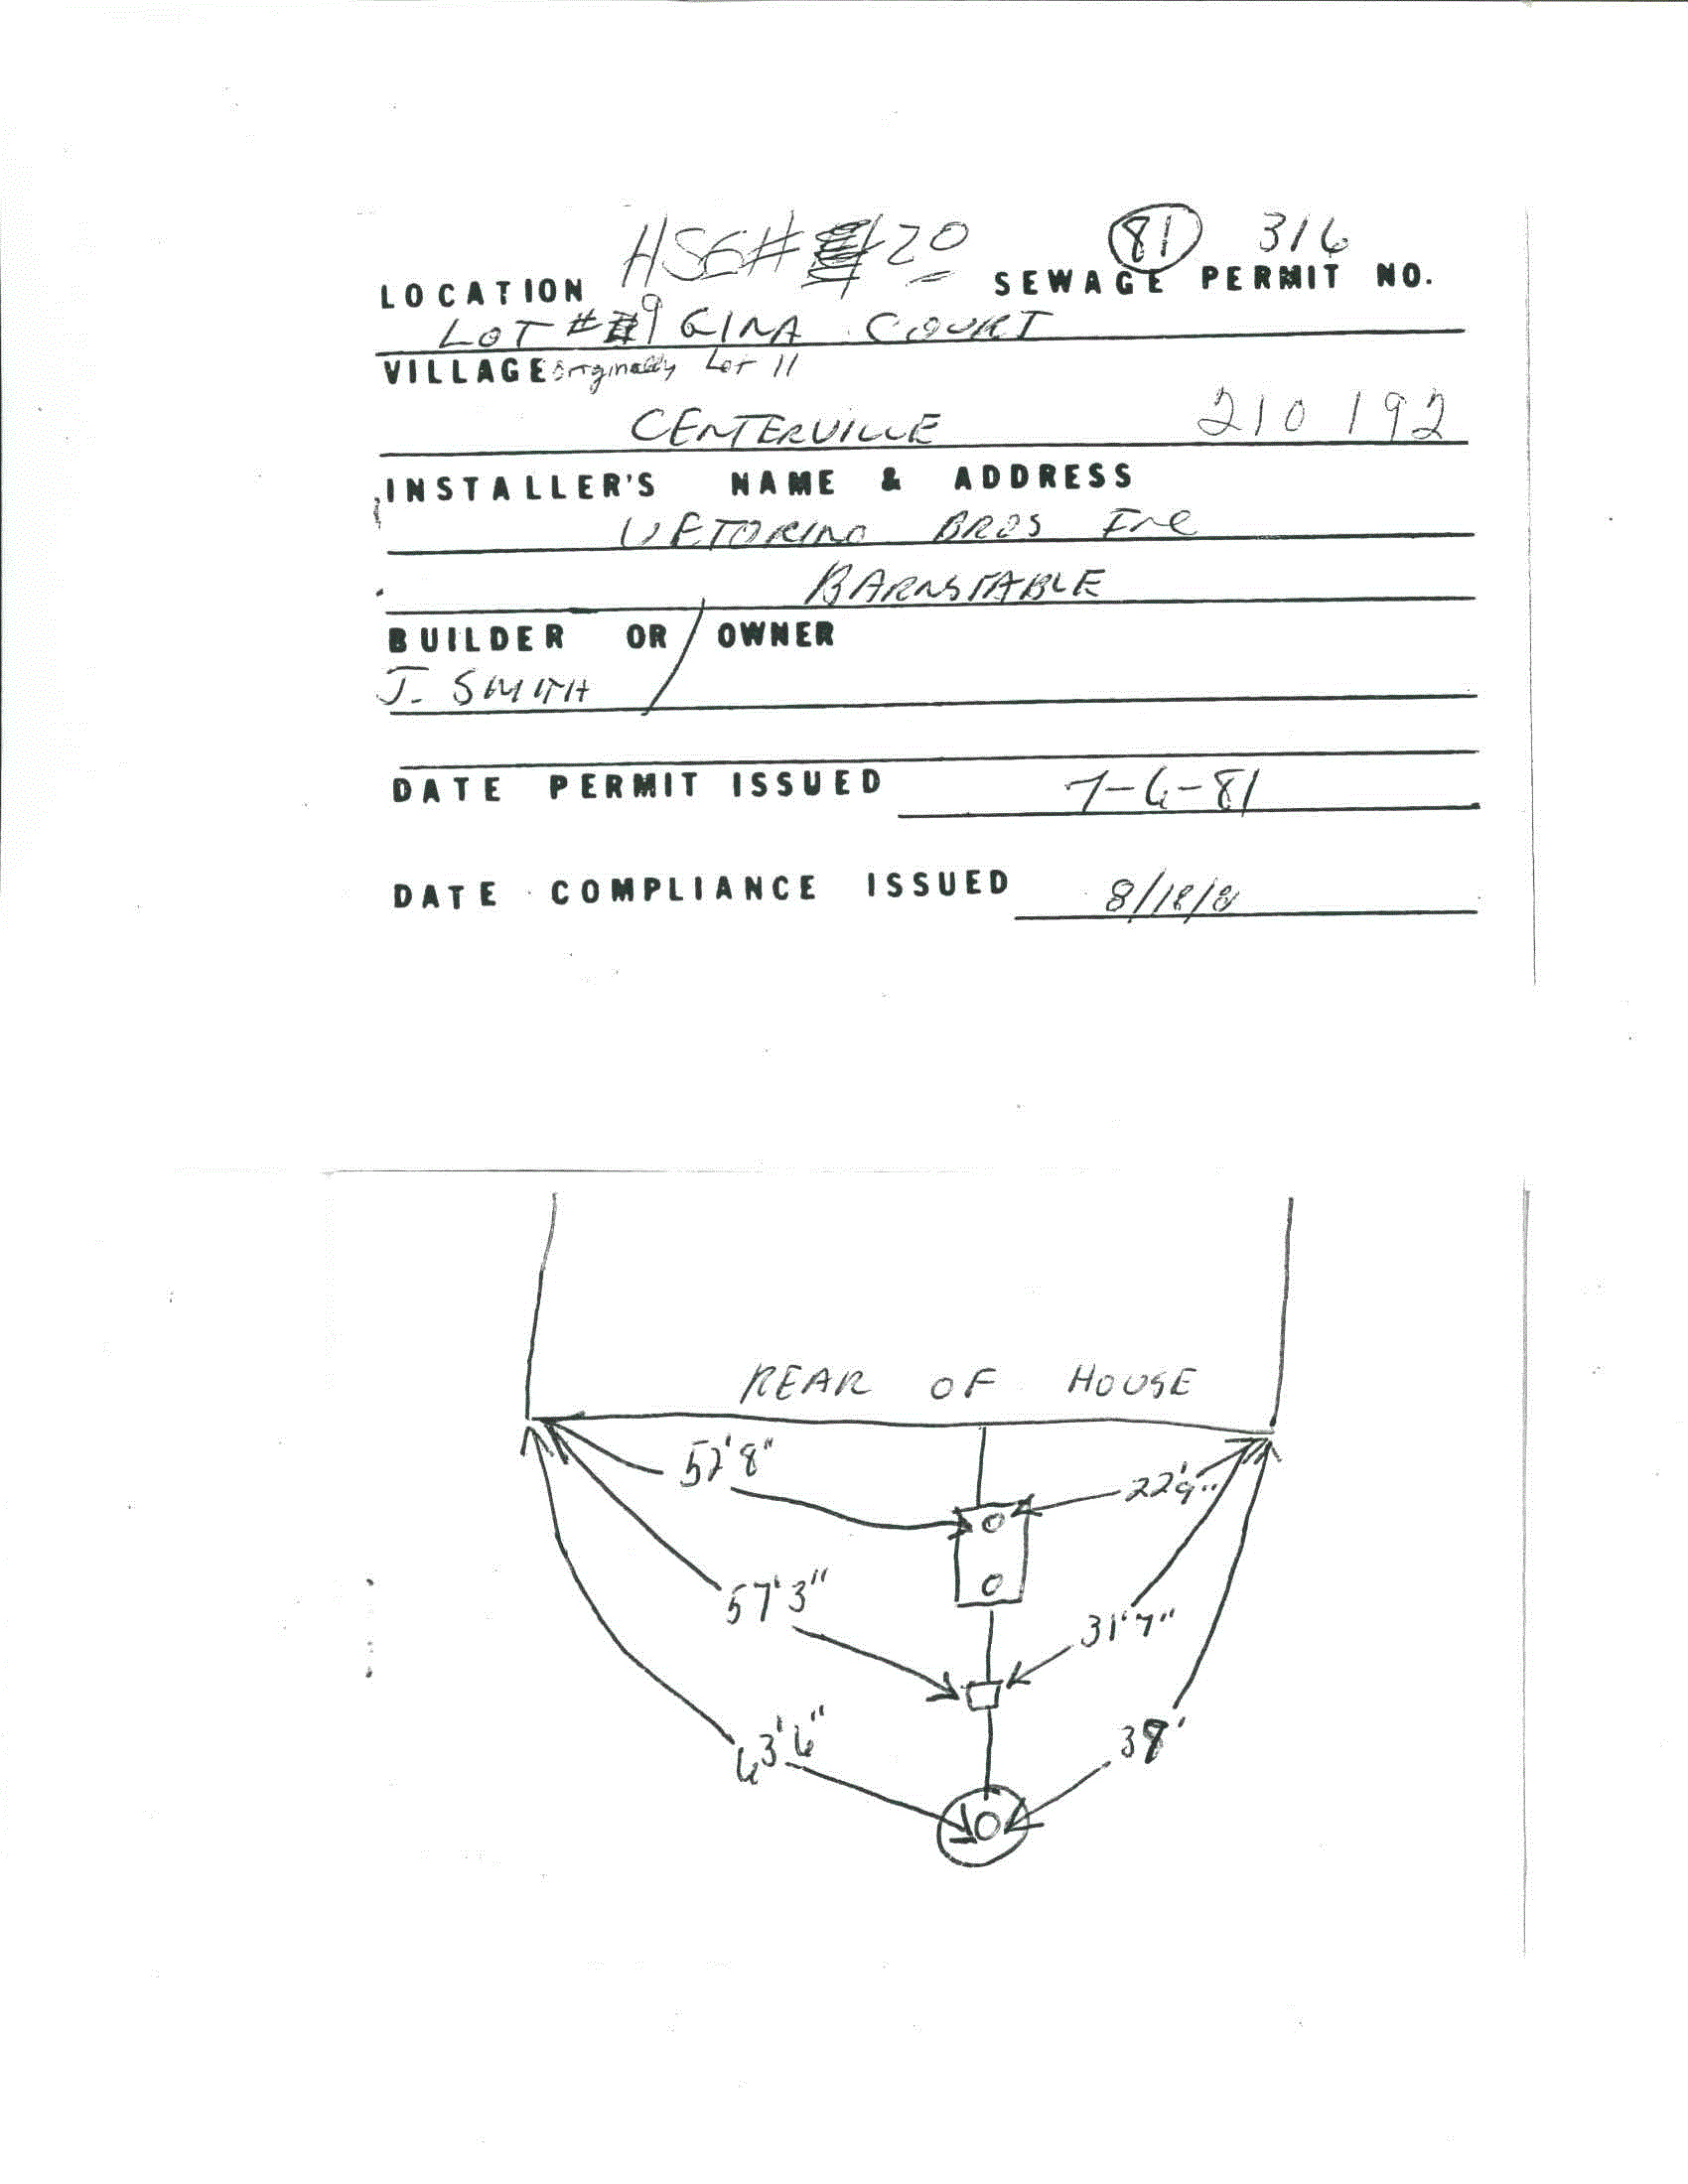 HSE # 20 (81) 316
LOCATION SEWAGE PERMIT NO.
LOT # 9 GINA COURT
VILLAGE Originally Lot 11
CENTERVILLE 210 192
INSTALLER'S NAME & ADDRESS
VETORINO BROS Inc
BARNSTABLE
BUILDER OR / OWNER
J. SMITH
DATE PERMIT ISSUED 7-6-81
DATE COMPLIANCE ISSUED 8/18/81
REAR OF HOUSE
52'8" 22'9"
57'3" 31'7"
63'6" 38'